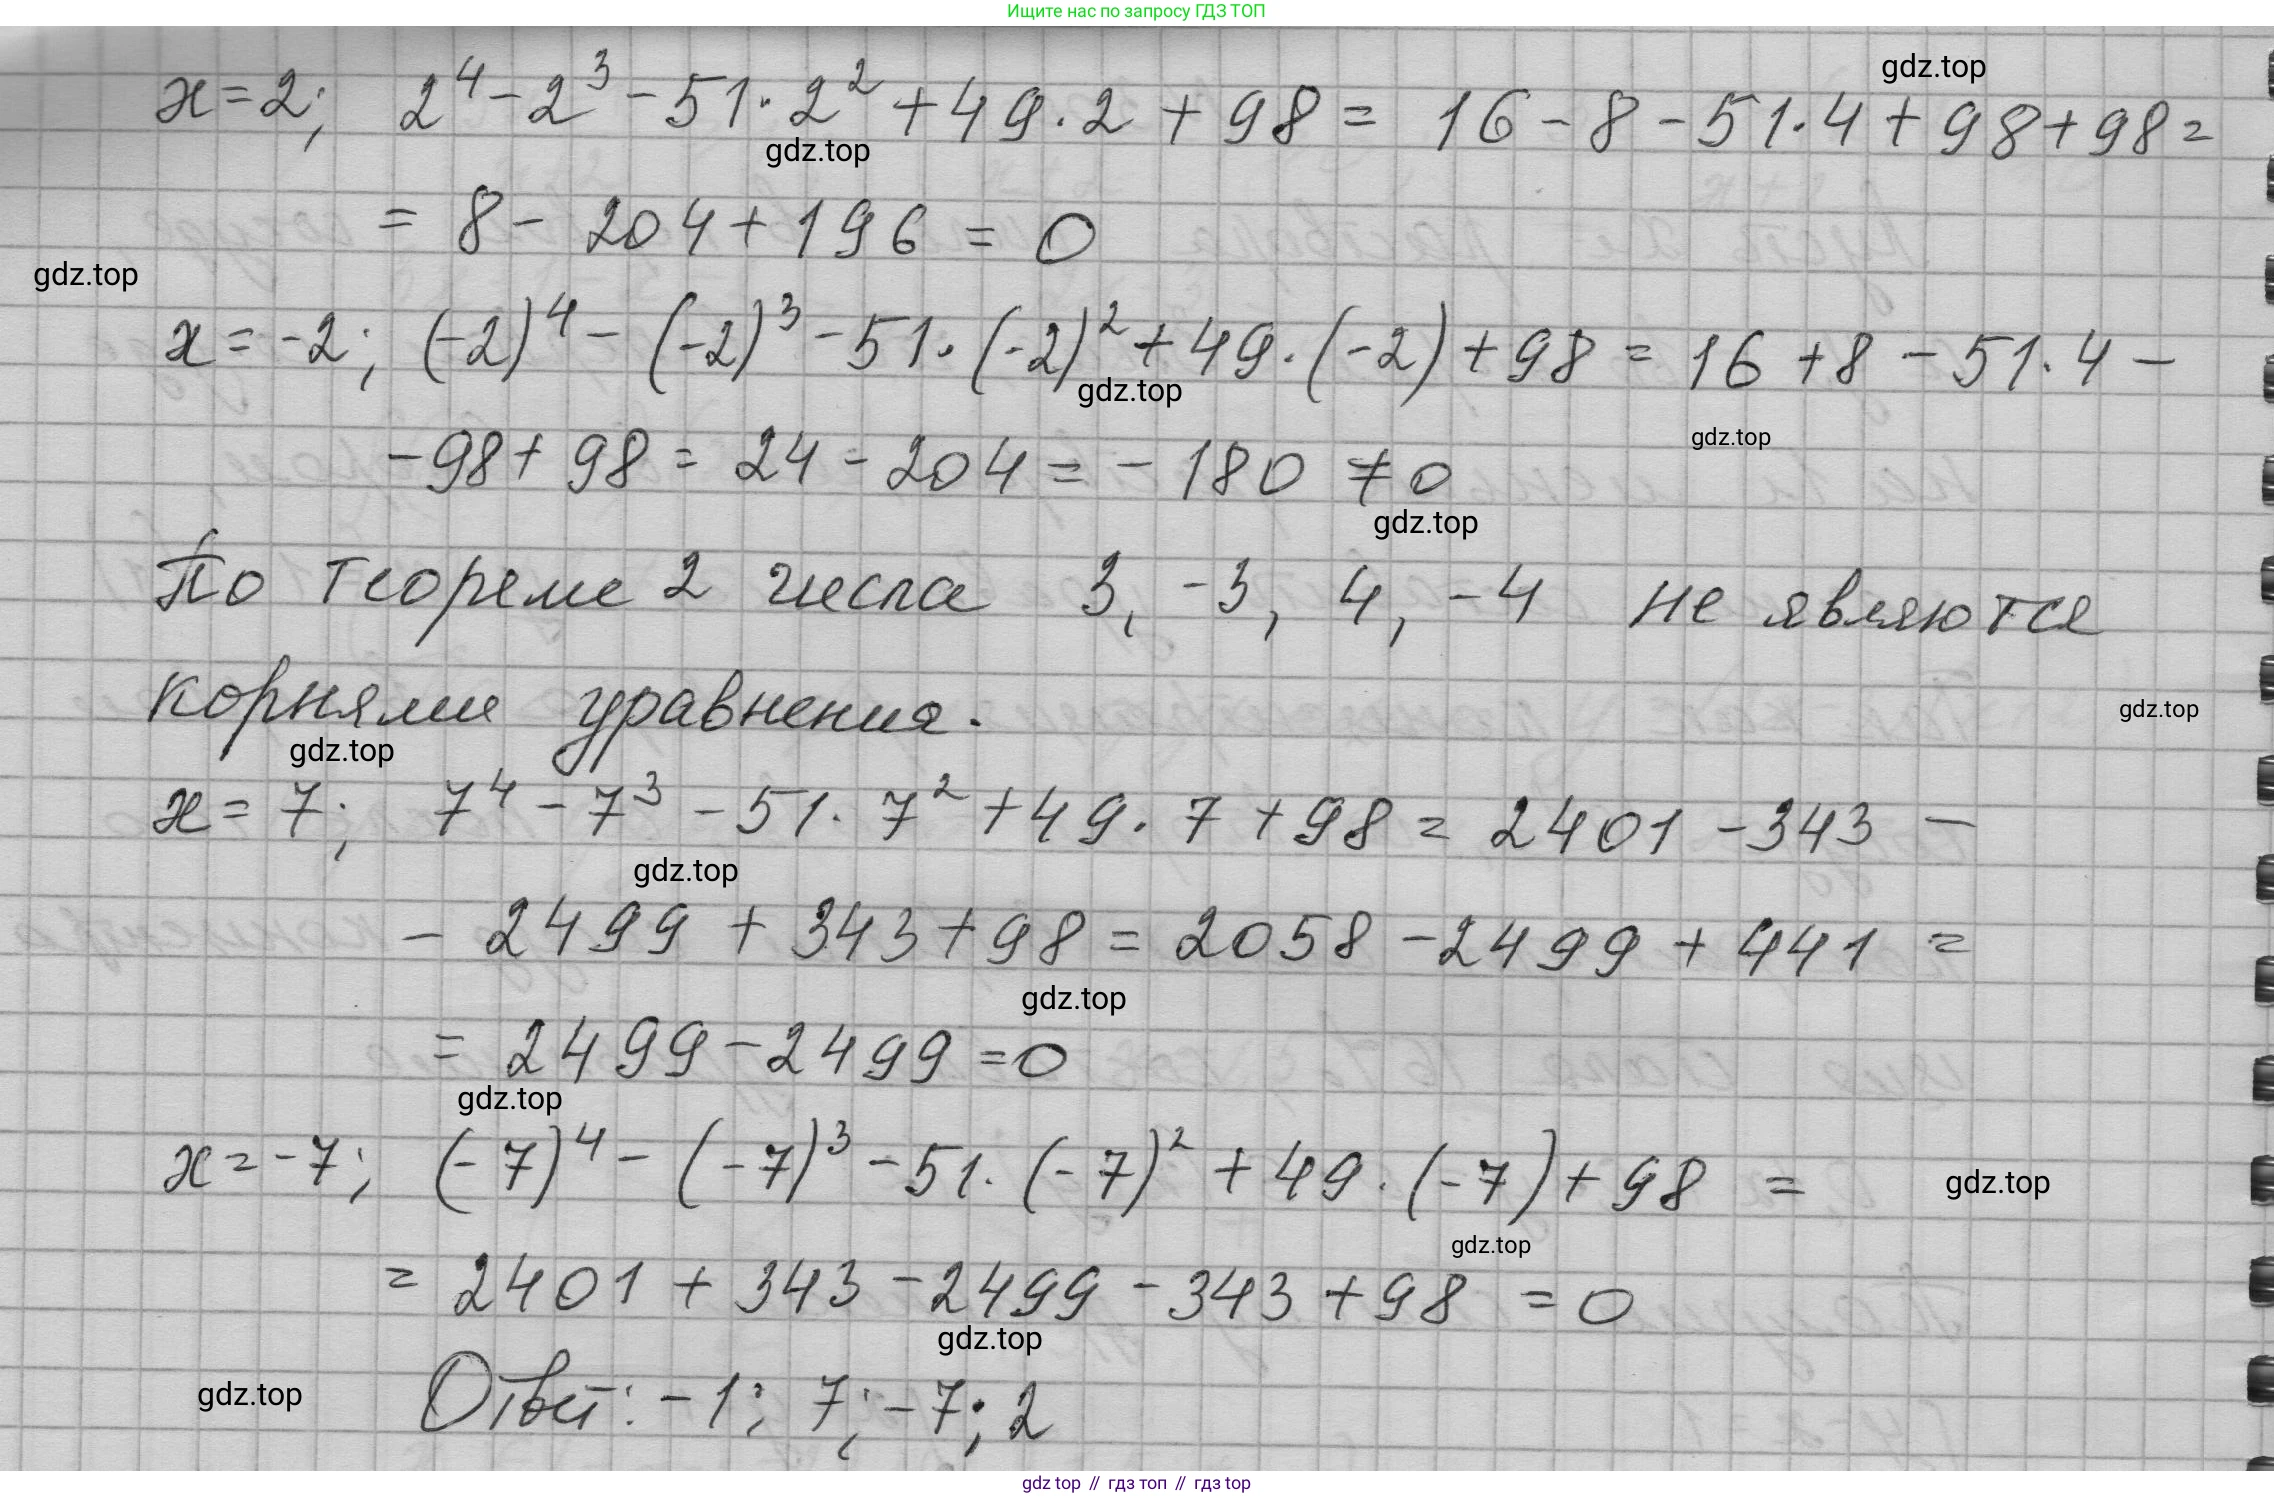 Ищите нас по запросу ГДЗ ТОП
x = 2; 2⁴ - 2³ - 51 · 2² + 49 · 2 + 98 = 16 - 8 - 51 · 4 + 98 + 98 =
gdz.top
gdz.top
= 8 - 204 + 196 = 0
gdz.top
x = -2; (-2)⁴ - (-2)³ - 51 · (-2)² + 49 · (-2) + 98 = 16 + 8 - 51 · 4 -
gdz.top
gdz.top
- 98 + 98 = 24 - 204 = - 180 ≠ 0
gdz.top
По теореме 2 числа 3, -3, 4, -4 не являются
корнями уравнения.
gdz.top
gdz.top
x = 7; 7⁴ - 7³ - 51 · 7² + 49 · 7 + 98 = 2401 - 343 -
gdz.top
- 2499 + 343 + 98 = 2058 - 2499 + 441 =
gdz.top
= 2499 - 2499 = 0
gdz.top
x = -7; (-7)⁴ - (-7)³ - 51 · (-7)² + 49 · (-7) + 98 =
gdz.top
gdz.top
= 2401 + 343 - 2499 - 343 + 98 = 0
gdz.top
gdz.top
Ответ: -1; 7; -7; 2
gdz top // гдз топ // гдз top